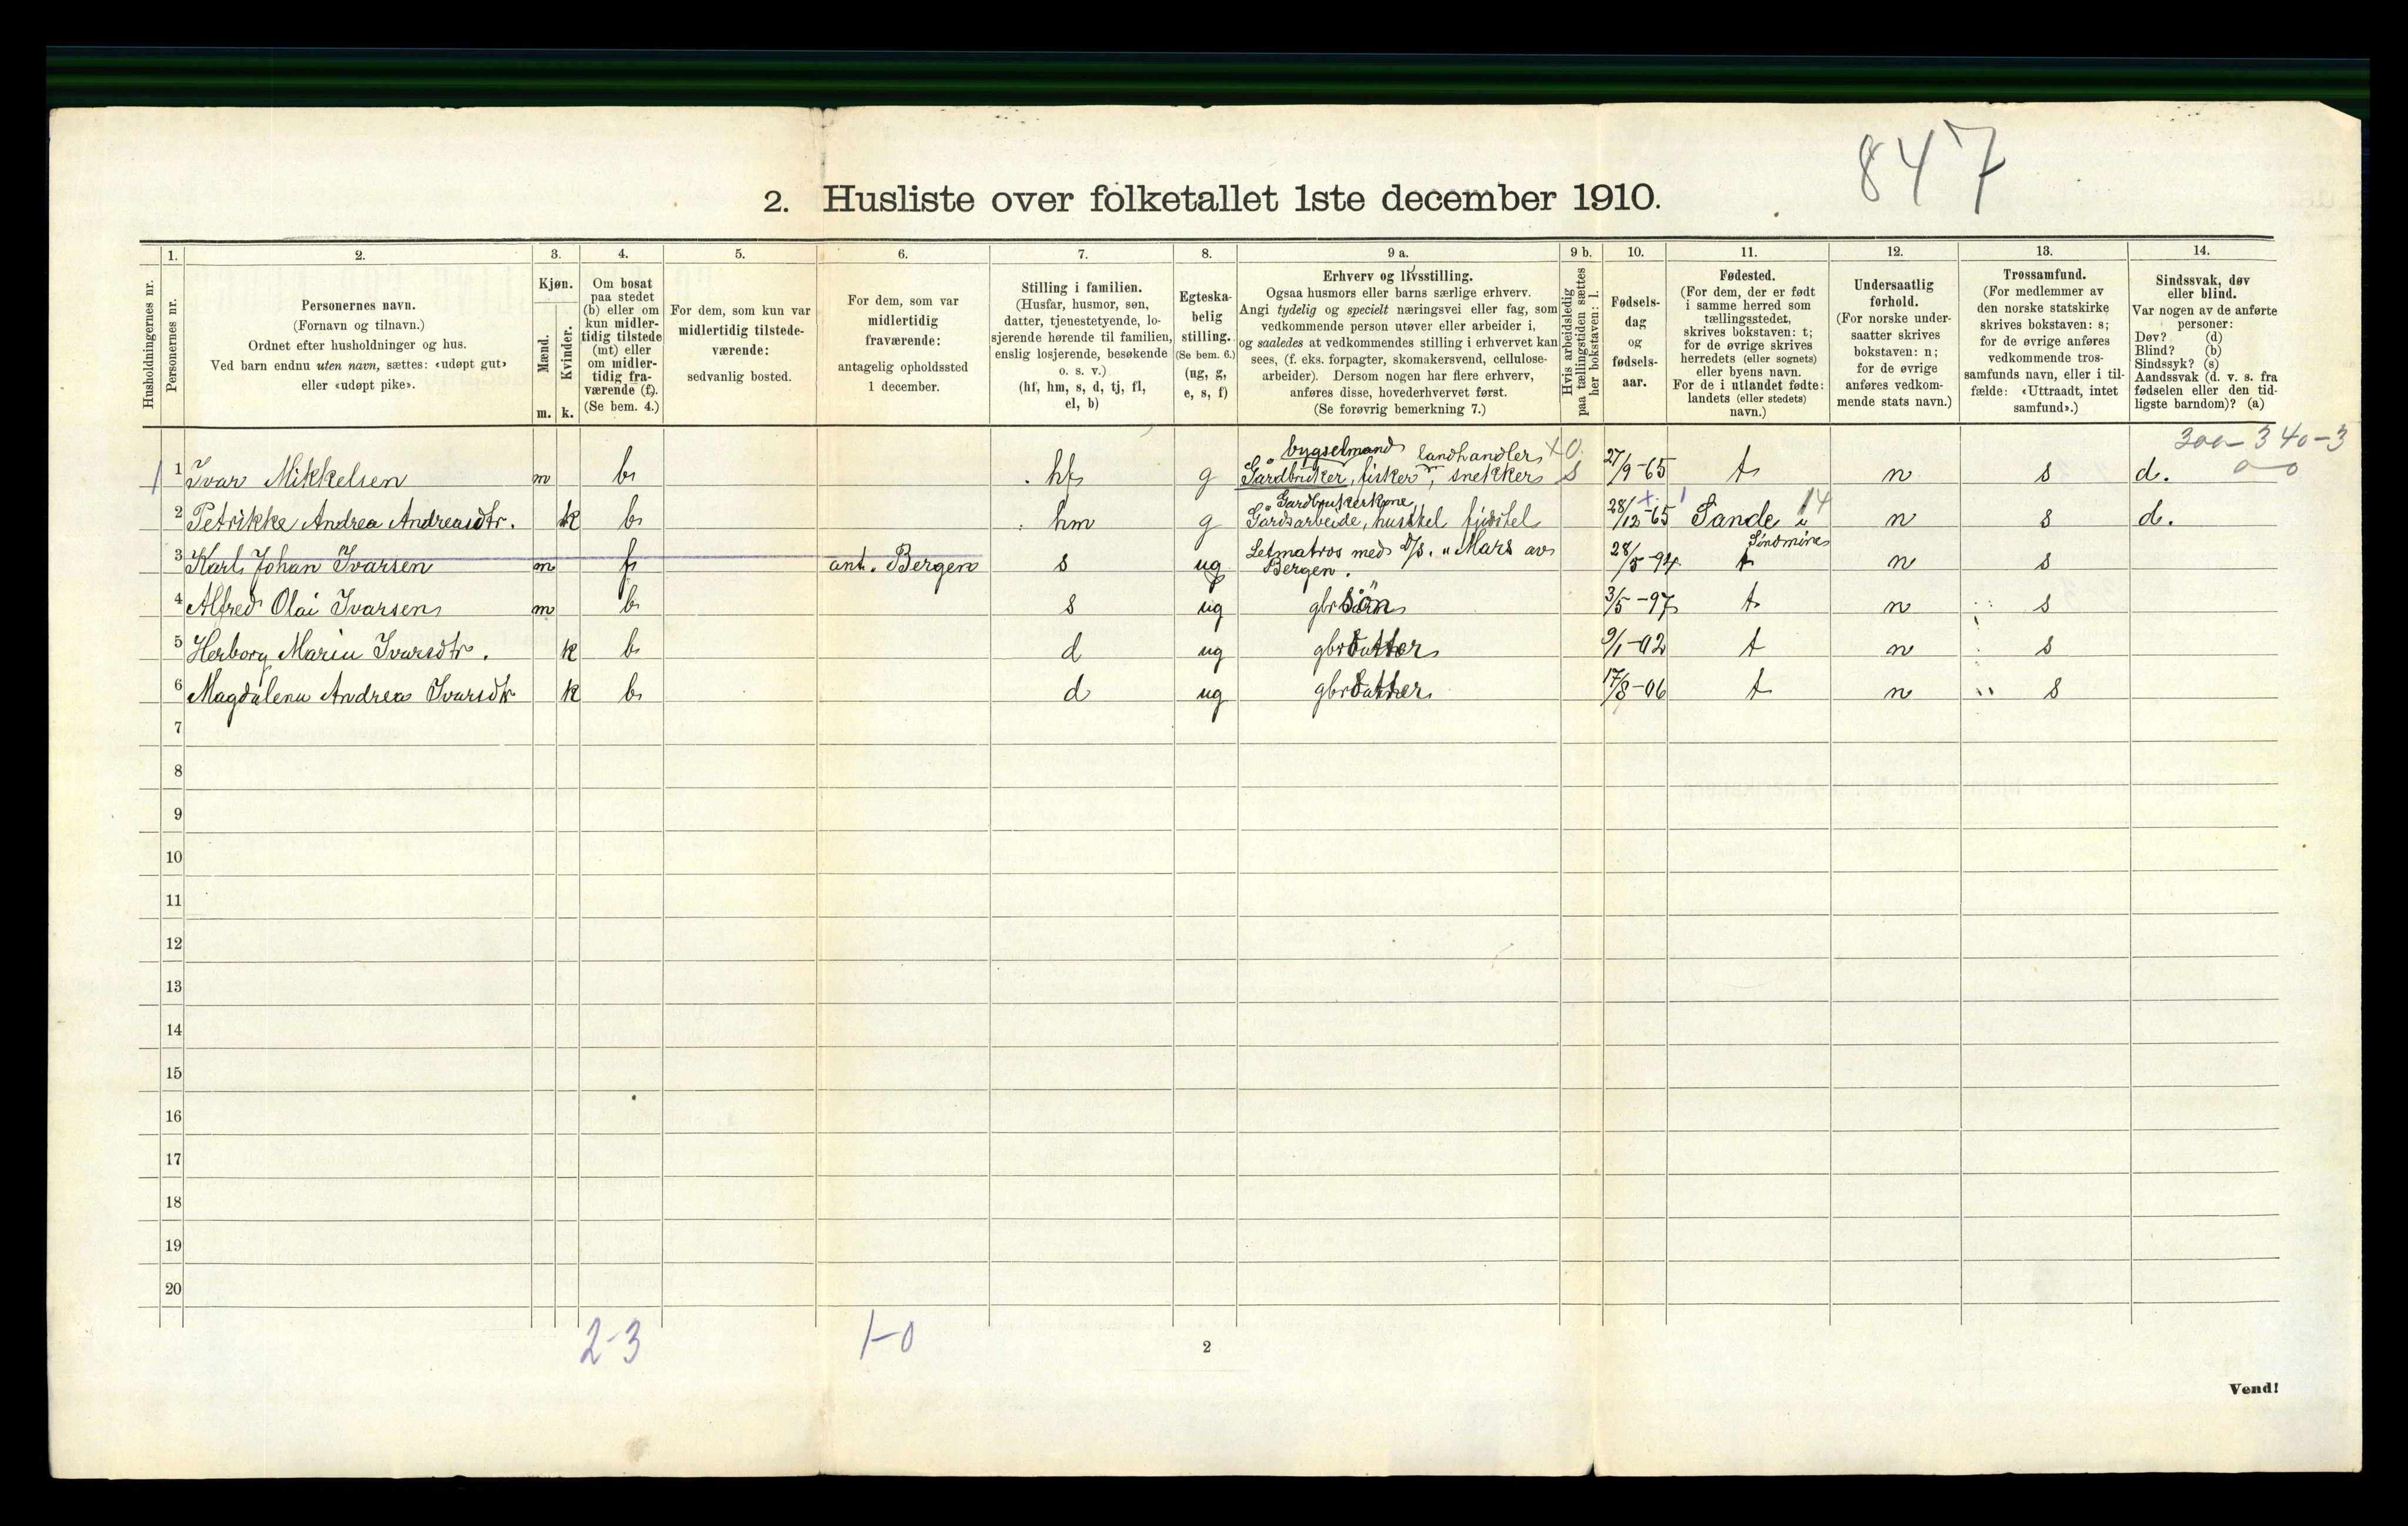 847
2. Husliste over folketallet 1ste december 1910.
Husholdningernes nr.
1.
Personernes nr.
2.
Personernes navn.
(Fornavn og tilnavn.)
Ordnet efter husholdninger og hus.
Ved barn endnu uten navn, sættes: «udøpt gut»
eller «udøpt pike».
3.
Kjøn.
Mænd.
Kvinder.
m. k.
4.
Om bosat
paa stedet
(b) eller om
kun midler-
tidig tilstede
(mt) eller
om midler-
tidig fra-
værende (f).
(Se bem. 4.)
5.
For dem, som kun var
midlertidig tilstede-
værende:
sedvanlig bosted.
6.
For dem, som var
midlertidig
fraværende:
antagelig opholdssted
1 december.
7.
Stilling i familien.
(Husfar, husmor, søn,
datter, tjenestetyende, lo-
sjerende hørende til familien,
enslig losjerende, besøkende
o. s. v.)
(hf, hm, s, d, tj, fl,
el, b)
8.
Egteska-
belig
stilling.
(Se bem. 6.)
(ug, g,
e, s, f)
9 a.
Erhverv og livsstilling.
Ogsaa husmors eller barns særlige erhverv.
Angi tydelig og specielt næringsvei eller fag, som
vedkommende person utøver eller arbeider i,
og saaledes at vedkommendes stilling i erhvervet kan
sees, (f. eks. forpagter, skomakersvend, cellulose-
arbeider). Dersom nogen har flere erhverv,
anføres disse, hovederhvervet først.
(Se forøvrig bemerkning 7.)
9 b.
Hvis arbeidsledig
paa tællingstiden sættes
her bokstaven: l.
10.
Fødsels-
dag
og
fødsels-
aar.
11.
Fødested.
(For dem, der er født
i samme herred som
tællingsstedet,
skrives bokstaven: t;
for de øvrige skrives
herredets (eller sognets)
eller byens navn.
For de i utlandet fødte:
landets (eller stedets)
navn.)
12.
Undersaatlig
forhold.
(For norske under-
saatter skrives
bokstaven: n;
for de øvrige
anføres vedkom-
mende stats navn.)
13.
Trossamfund.
(For medlemmer av
den norske statskirke
skrives bokstaven: s;
for de øvrige anføres
vedkommende tros-
samfunds navn, eller i til-
fælde: «Uttraadt, intet
samfund».)
14.
Sindssvak, døv
eller blind.
Var nogen av de anførte
personer:
Døv? (d)
Blind? (b)
Sindssyk? (s)
Aandssvak (d. v. s. fra
fødselen eller den tid-
ligste barndom)? (a)
bygselmand landhandler
1 1 Ivar Mikkelsen m b hf g Gårdbruker, fisker, snekker s 27/9-65 t n s d.
Gardbrukerkone
2 Petrikke Andrea Andreasdtr. k b hm g Gårdsarbeide, husstel fjøsstel 28/12-65 Sande i n s d.
Søndmøre
3 Karl Johan Ivarsen m f ant. Bergen s ug Letmatros med d/s. "Mars av 28/5-94 t n s
Bergen.
4 Alfred Olai Ivarsen m b s ug gbr søn 3/5-97 t n s
5 Herborg Marie Ivarsdtr. k b d ug gbr datter 9/1-02 t n s
6 Magdalena Andrea Ivarsdtr k b d ug gbr datter 17/8-06 t n s
7
8
9
10
11
12
13
14
15
16
17
18
19
20
2-3 1-0
2
Vend!